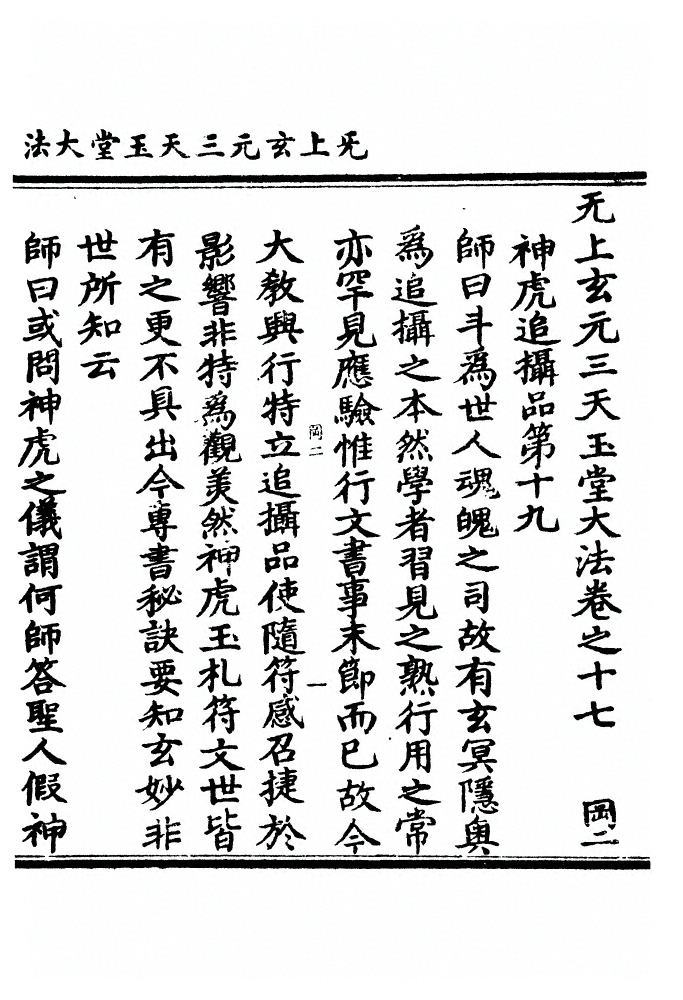 无上玄元三天玉堂大法
无上玄元三天玉堂大法卷之十七 岡二
神虎追攝品第十九
師曰斗爲世人魂魄之司故有玄冥隱奥
爲追攝之本然學者習見之熟行用之常
亦罕見應驗惟行文書事末節而已故今
岡二 一
大教興行特立追攝品使隨符感召捷於
影響非特爲觀美然神虎玉札符文世皆
有之更不具出今專書秘訣要知玄妙非
世所知云
師曰或問神虎之儀謂何師答聖人假神